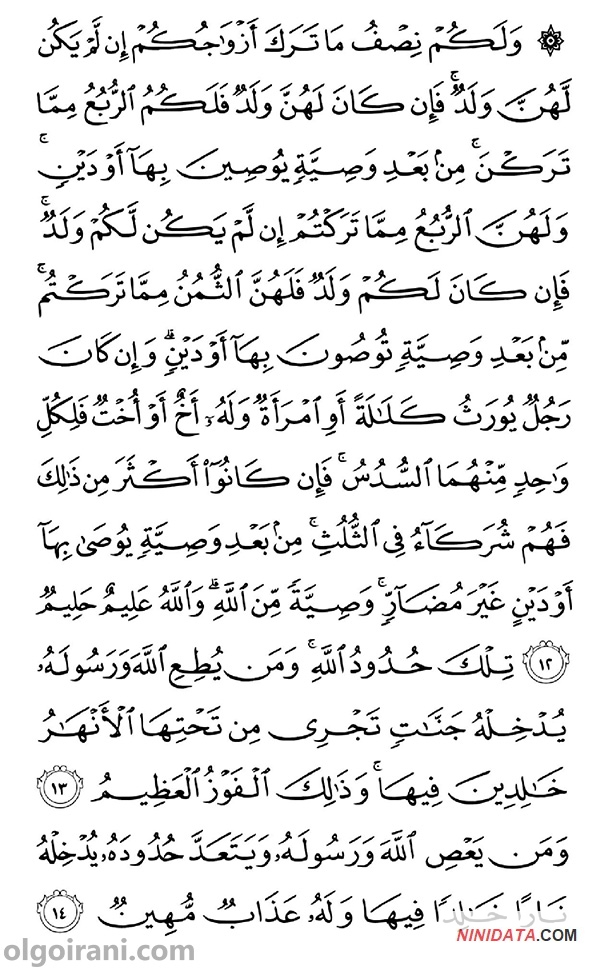 ۞ وَلَكُمْ نِصْفُ مَا تَرَكَ أَزْوَٰجُكُمْ إِن لَّمْ يَكُن
لَّهُنَّ وَلَدٌ ۚ فَإِن كَانَ لَهُنَّ وَلَدٌ فَلَكُمُ ٱلرُّبُعُ مِمَّا
تَرَكْنَ ۚ مِنۢ بَعْدِ وَصِيَّةٍ يُوصِينَ بِهَآ أَوْ دَيْنٍ ۚ
وَلَهُنَّ ٱلرُّبُعُ مِمَّا تَرَكْتُمْ إِن لَّمْ يَكُن لَّكُمْ وَلَدٌ ۚ
فَإِن كَانَ لَكُمْ وَلَدٌ فَلَهُنَّ ٱلثُّمُنُ مِمَّا تَرَكْتُم ۚ
مِّنۢ بَعْدِ وَصِيَّةٍ تُوصُونَ بِهَآ أَوْ دَيْنٍ ۗ وَإِن كَانَ
رَجُلٌ يُورَثُ كَلَٰلَةً أَوِ ٱمْرَأَةٌ وَلَهُۥٓ أَخٌ أَوْ أُخْتٌ فَلِكُلِّ
وَٰحِدٍ مِّنْهُمَا ٱلسُّدُسُ ۚ فَإِن كَانُوٓا۟ أَكْثَرَ مِن ذَٰلِكَ
فَهُمْ شُرَكَآءُ فِى ٱلثُّلُثِ ۚ مِنۢ بَعْدِ وَصِيَّةٍ يُوصَىٰ بِهَآ
أَوْ دَيْنٍ غَيْرَ مُضَآرٍّ ۚ وَصِيَّةً مِّنَ ٱللَّهِ ۗ وَٱللَّهُ عَلِيمٌ حَلِيمٌ
۝١٢ تِلْكَ حُدُودُ ٱللَّهِ ۚ وَمَن يُطِعِ ٱللَّهَ وَرَسُولَهُۥ
يُدْخِلْهُ جَنَّٰتٍ تَجْرِى مِن تَحْتِهَا ٱلْأَنْهَٰرُ
خَٰلِدِينَ فِيهَا ۚ وَذَٰلِكَ ٱلْفَوْزُ ٱلْعَظِيمُ ۝١٣
وَمَن يَعْصِ ٱللَّهَ وَرَسُولَهُۥ وَيَتَعَدَّ حُدُودَهُۥ يُدْخِلْهُ
نَارًا خَٰلِدًا فِيهَا وَلَهُۥ عَذَابٌ مُّهِينٌ ۝١٤
NINIDATA.COM
olgoirani.com